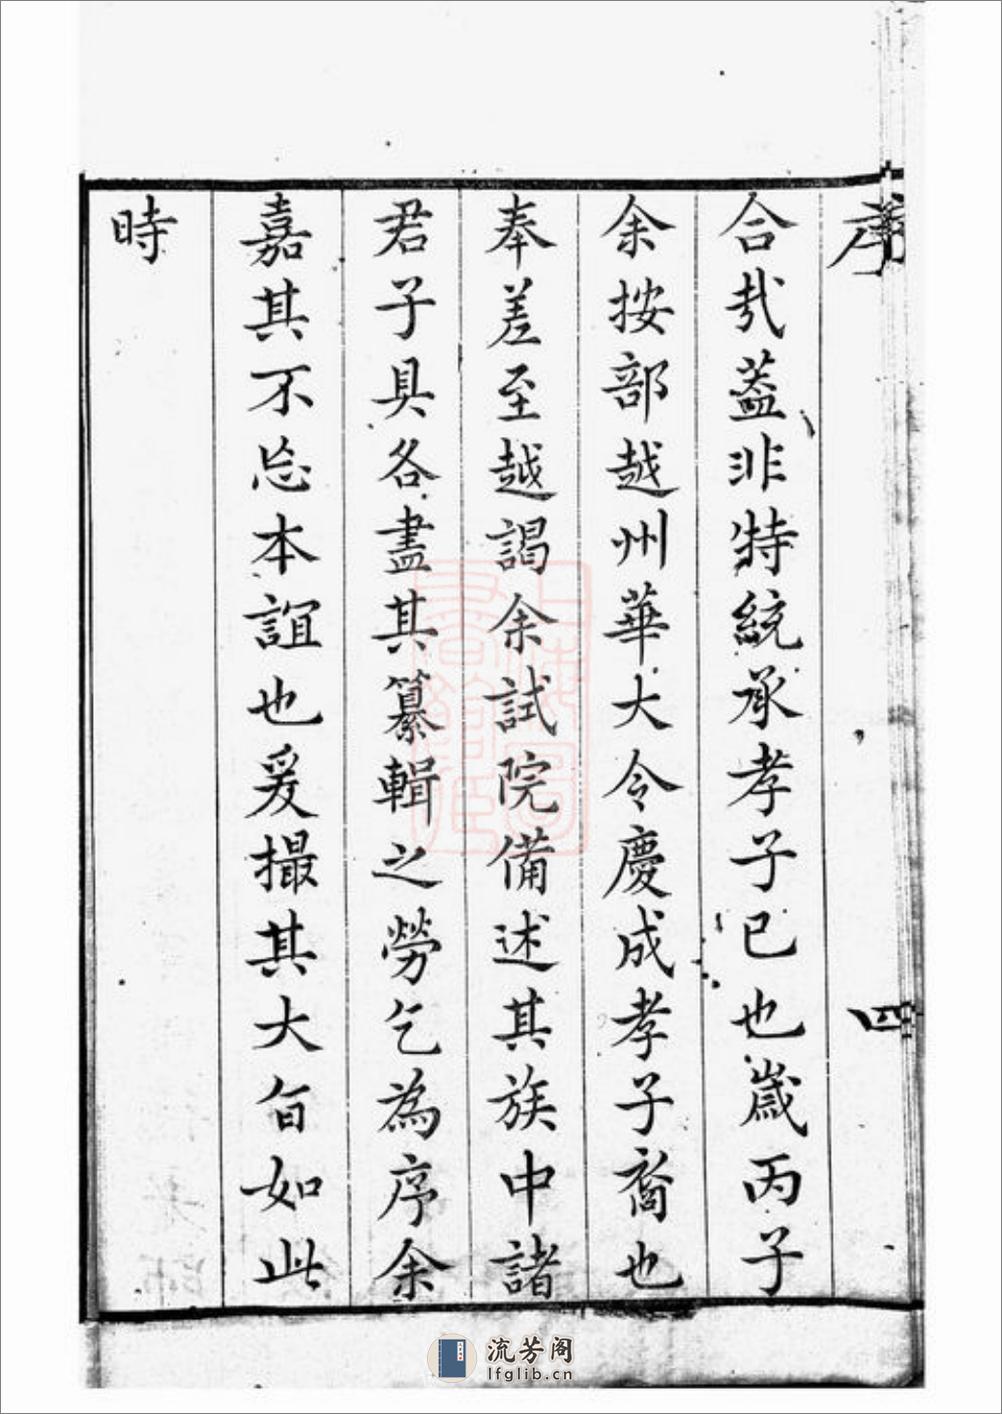 序
四
合哉蓋非特統承孝子已也歲丙子
余按部越州華大令慶成孝子裔也
奉差至越謁余試院備述其族中諸
君子具各盡其纂輯之勞乞為序余
嘉其不忘本誼也爰撮其大旨如此
時
上海圖
書館藏
流芳阁
lfglib.cn